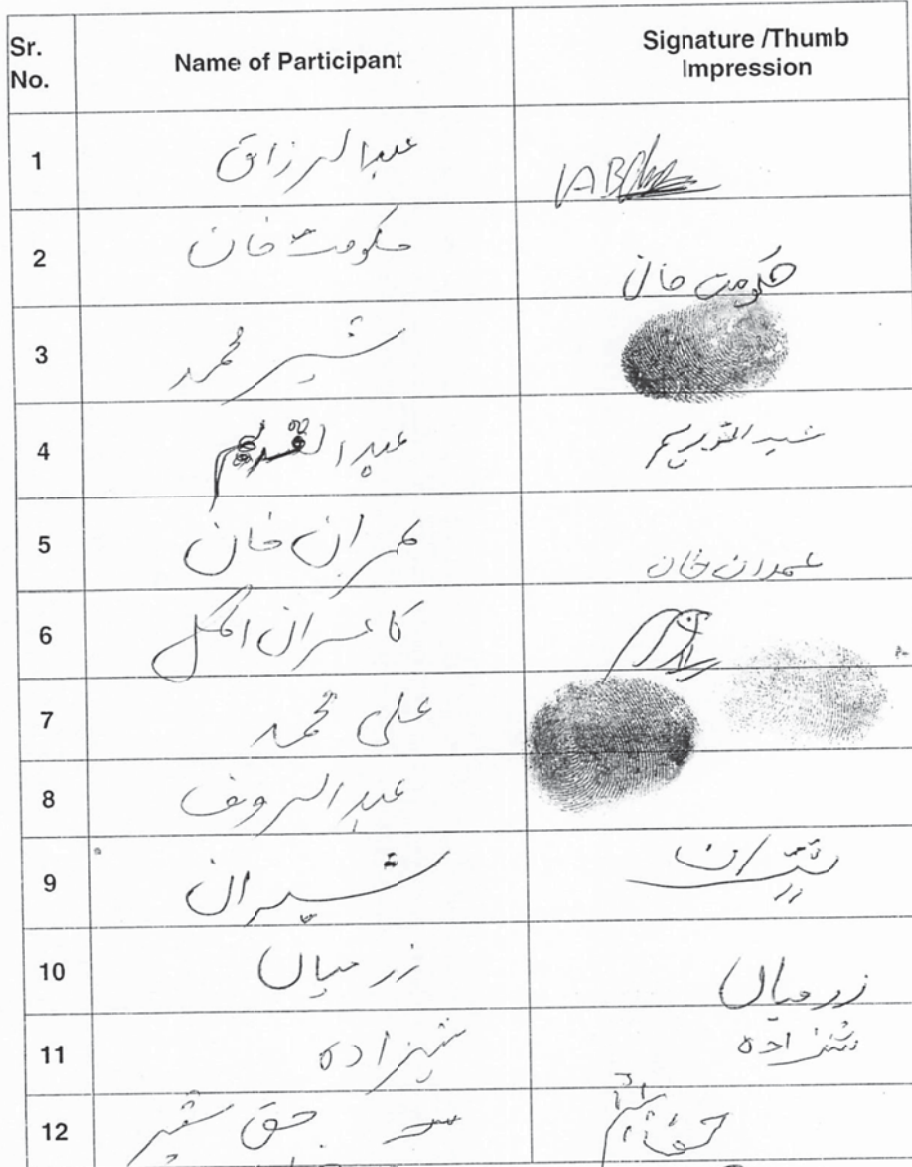 Sr. No. Name of Participant Signature /Thumb Impression
1 عبدالرزاق
2 حکومت خان حکومت خان
3 شیر محمد
4 عبدالقدیم
5 عمران خان عمران خان
6 کامران
7 علی محمد
8 عبدالروف
9 شیران
10 زر میاں زر میاں
11 شیزادہ شیزادہ
12 حق شیر